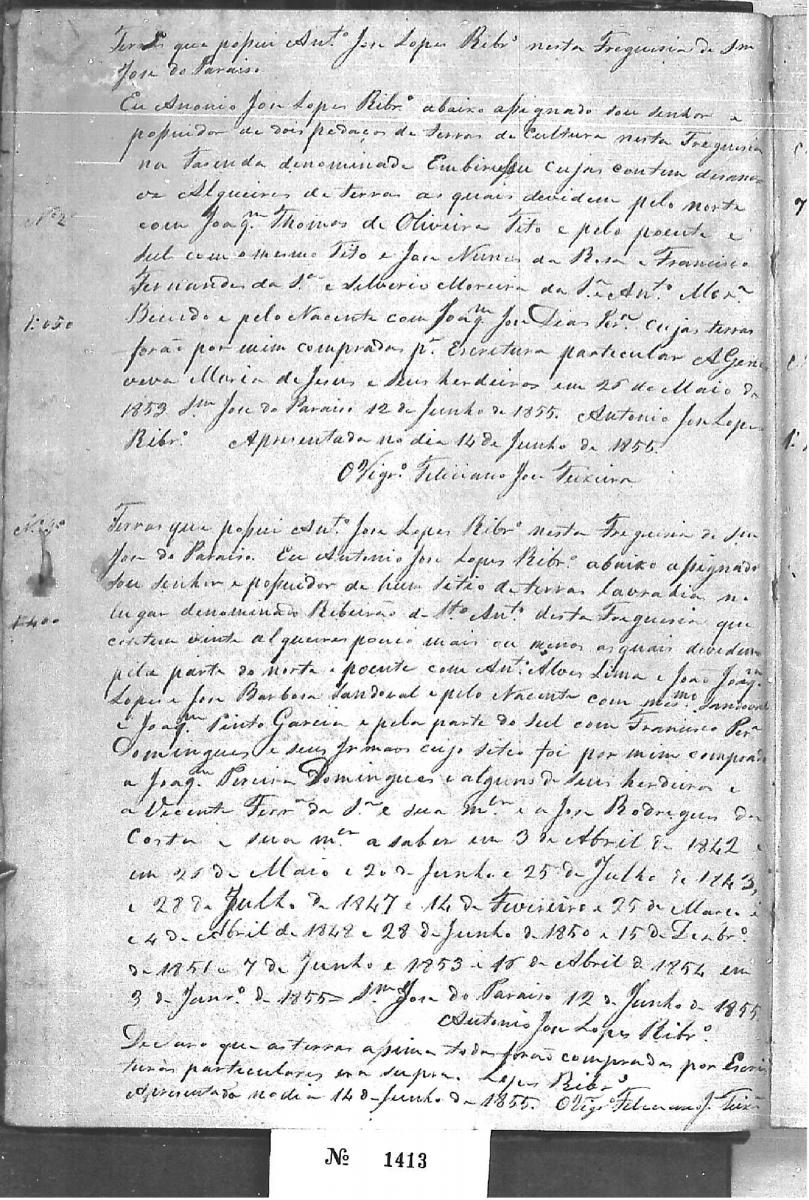 Terras que possui Ant.º Jose Lopes Ribr.º nesta Freguesia de Sm
Jose do Paraiso
Eu Antonio Jose Lopes Ribr.º abaixo assignado sou senhor e
possuidor de dois pedaços de terras de Cultura nesta Freguesia
na Fasenda denominada Embirussu cujas contem
Alqueires de terras as quais devidem pelo norte
Nº 2º
com Joaq.m Thomas de Oliveira Tito e pelo poente e
sul com o mesmo Tito e Jose Nunes da Rosa e Francisco
Fernandes da S.ª e Silverio Moreira da S.ª e An.tº Mor.ª
1:050
e pelo Nacente com Joaq.m Jose Dias Per.ª cujas terras
forão por mim compradas p.r Escritura particular A Gene
veva Maria de Jesus e seus herdeiros em 26 de Maio de
1853 Sm Jose do Paraiso 12 de Junho de 1855. Antonio Jose Lopes
Ribr.º Apresentada no dia 14 de Junho de 1855.
O Vigr.º Feliciano Jose Teixeira
Nº 3º
Terras que possui Ant.º Jose Lopes Ribr.º nesta Freguesia de Sm
Jose do Paraiso. Eu Antonio Jose Lopes Ribr.º abaixo assignado
sou senhor e possuidor de hum sitio de terras lavradia no
1:400
lugar denominado Ribeirão de Stº Ant.º desta Freguesia que
contem vinte alqueires pouco mais ou menos as quais devidem
pela parte do norte e poente com Ant.º Alves Lima e João Joaq.m
Lopes e Jose Barbosa Sandoval e pelo Nacente com mes.mo Sandoval
e Joaq.m Pinto Garcia e pela parte do sul com Francisco Per.ª
Domingues e seus Irmaos cujo sitio foi por mim comprado
a Joaq.m Pereira Domingues e alguns de seus herdeiros e
a Vicente Ferr.ª da S.ª e sua m.er e a Jose Rodrigues da
Costa e sua m.er a saber em 3 de Abril de 1842 e
em 26 de Maio e 20 de Junho e 25 de Julho de 1843,
e 28 de Julho de 1847 e 14 de Fevireiro e 25 de Março e
e 4 de Abril de 1848 e 28 de Junho de 1850 e 15 de Dezbr.º
de 1851 e 7 de Junho e 1853 e 16 de Abril de 1854 em
3 de Janr.º de 1855 Sm Jose do Paraiso 12 de Junho de 1855.
Antonio Jose Lopes Ribr.º
Declaro que as terras assima todas forão compradas por Escri
turas particulares era supra. Lopes Ribr.º
Apresentada no dia 14 de Junho de 1855. O Vigr.º Feliciano J. Teixr.ª
Nº 1413